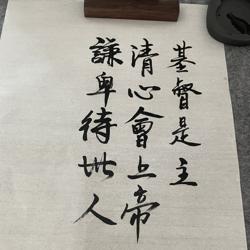 基督是主
清心會上帝
謙卑待世人